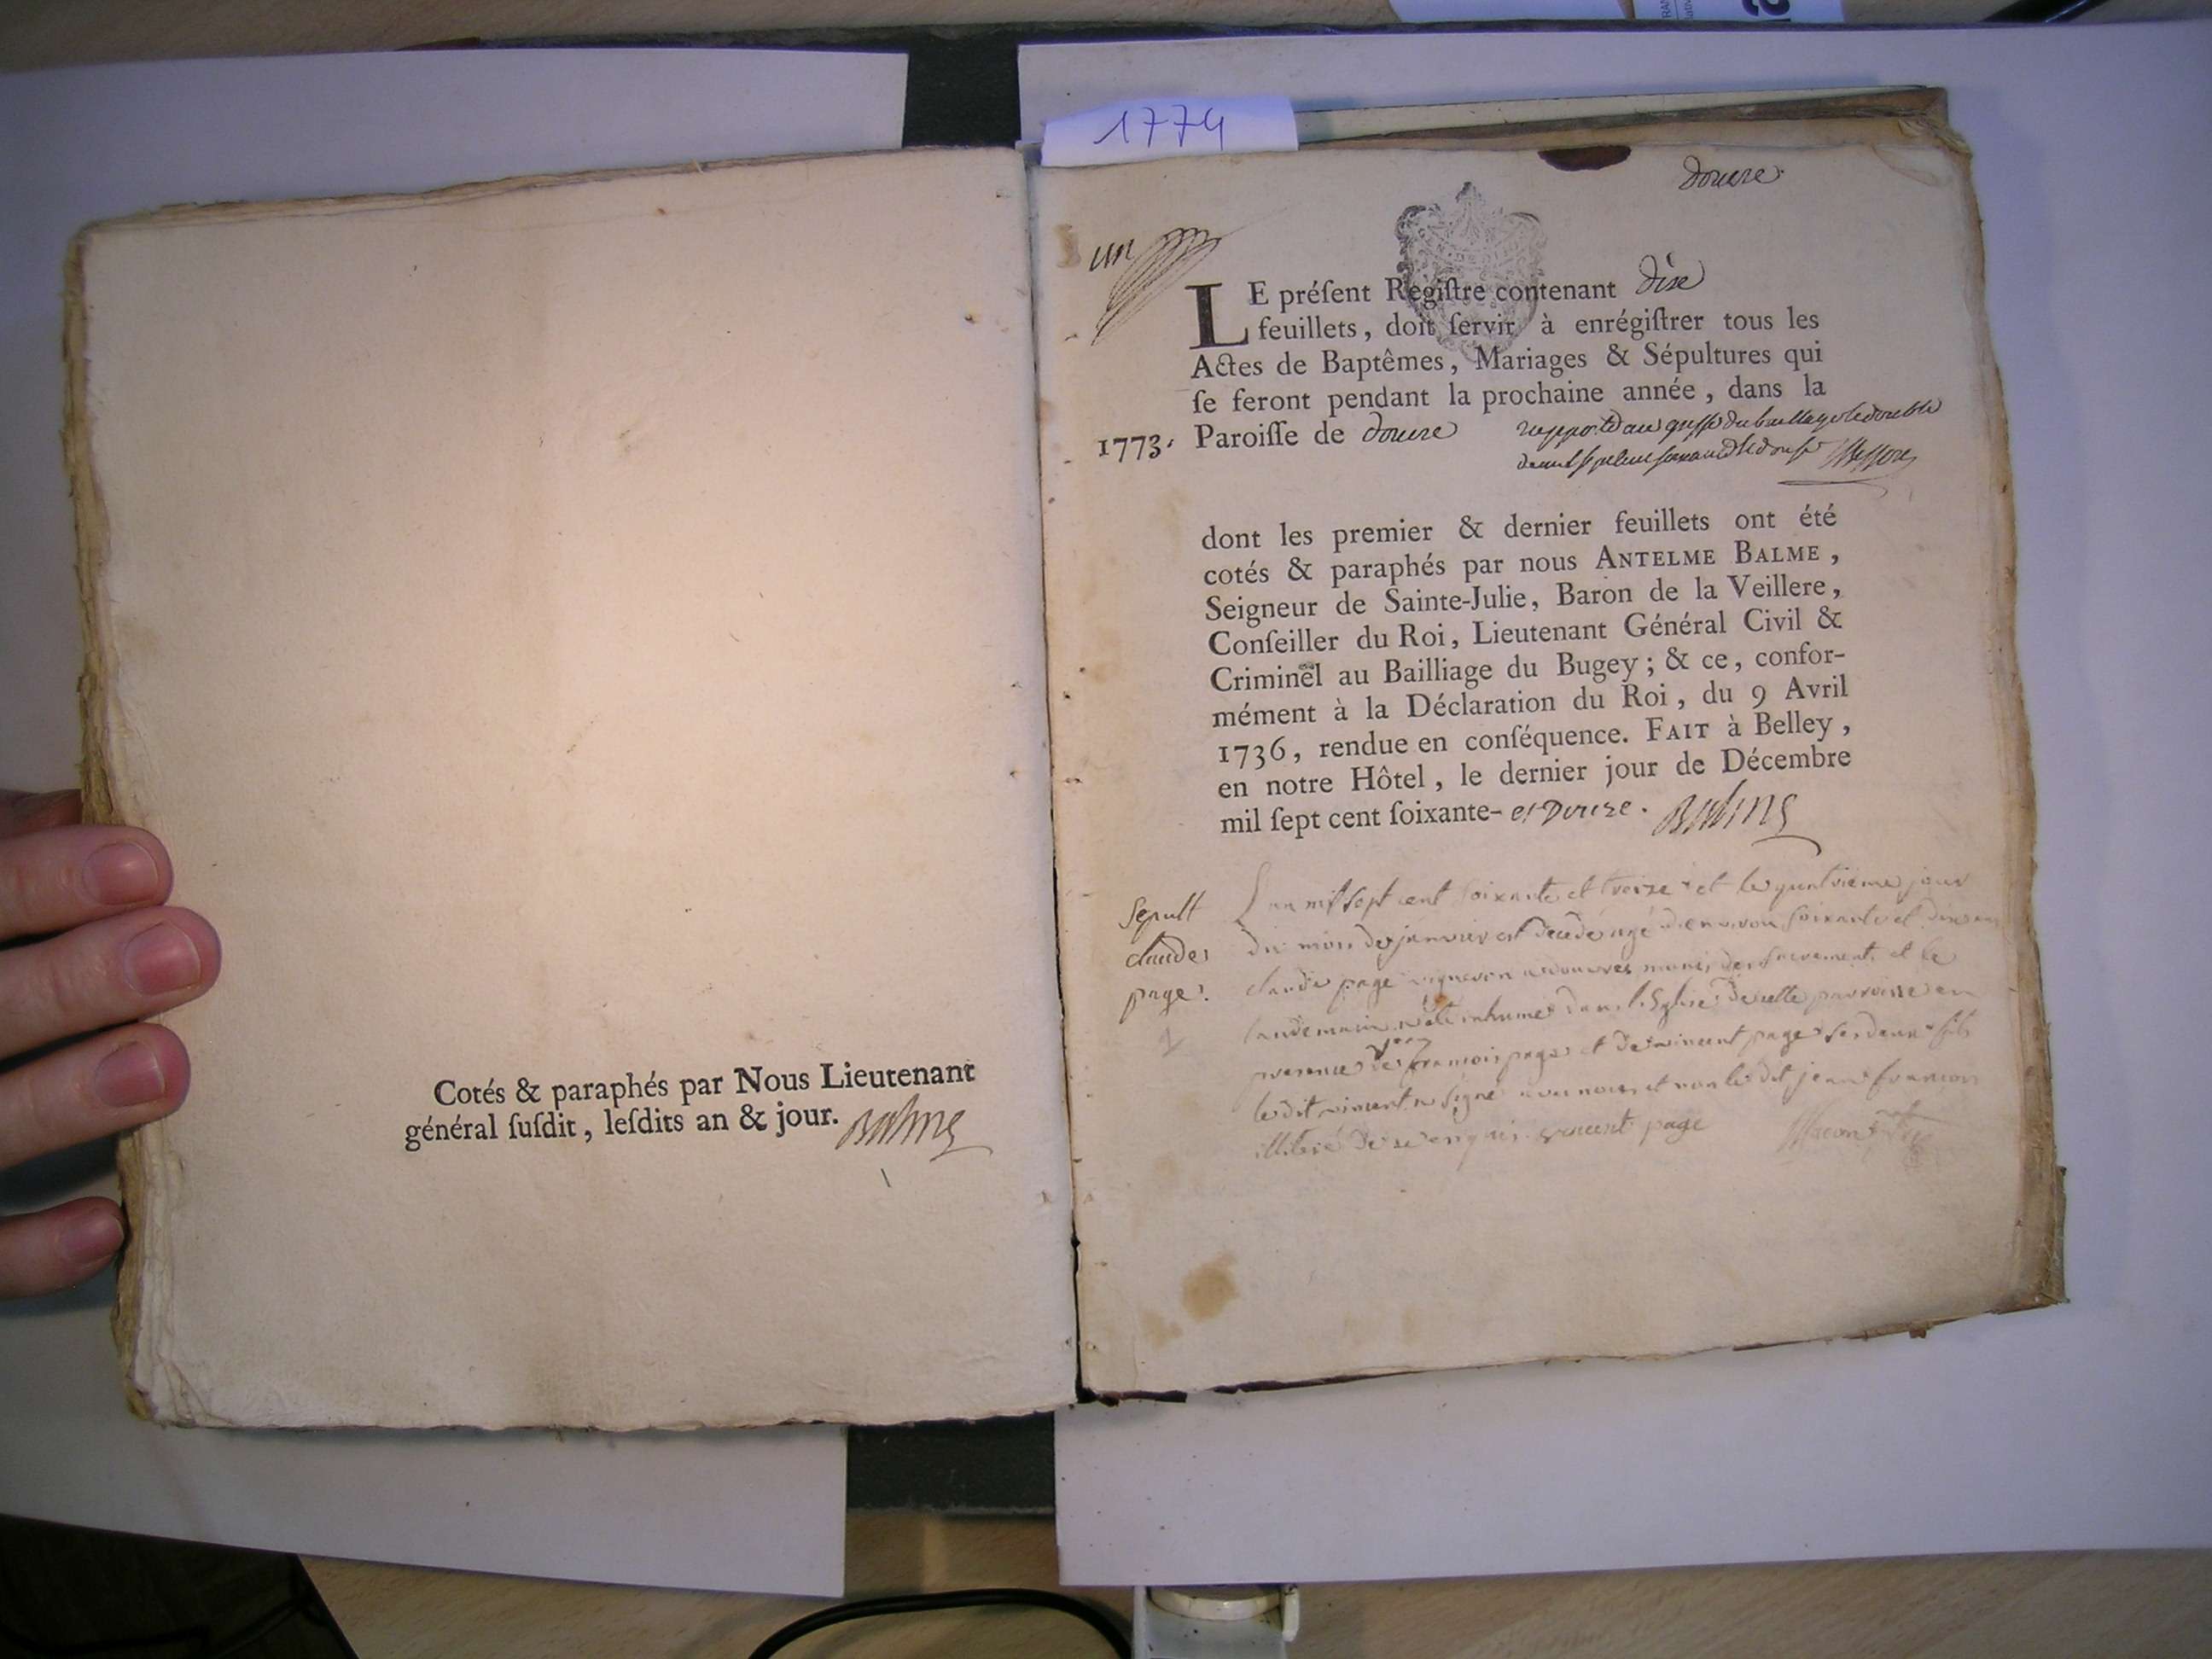 1774
Cotés & paraphés par Nous Lieutenant
général ſuſdit, leſdits an & jour. Balme
douvre
un
LE préſent Regiſtre contenant dix
feuillets, doit ſervir à enrégiſtrer tous les
Actes de Baptêmes, Mariages & Sépultures qui
ſe feront pendant la prochaine année, dans la
1773. Paroiſſe de douvre
dont les premier & dernier feuillets ont été
cotés & paraphés par nous ANTELME BALME,
Seigneur de Sainte-Julie, Baron de la Veillere,
Conſeiller du Roi, Lieutenant Général Civil &
Criminel au Bailliage du Bugey; & ce, confor-
mément à la Déclaration du Roi, du 9 Avril
1736, rendue en conſéquence. FAIT à Belley,
en notre Hôtel, le dernier jour de Décembre
mil ſept cent ſoixante- et Douze. Balme
Sepult
claude
page.
L'an mil sept cent soixante et treize et le quatrieme jour
du mois de janvier est decedé agé d'environ soixante et dix ans
claude page vigneron a douvres munis des sacrements et le
landemain a été inhumé dans l'Eglise de cette parroisse en
presence de jean françois page et de vincent page ses deux fils
le dit vincent a signé avec nous et non le dit jean françois
illiteré de ce enquis vincent page